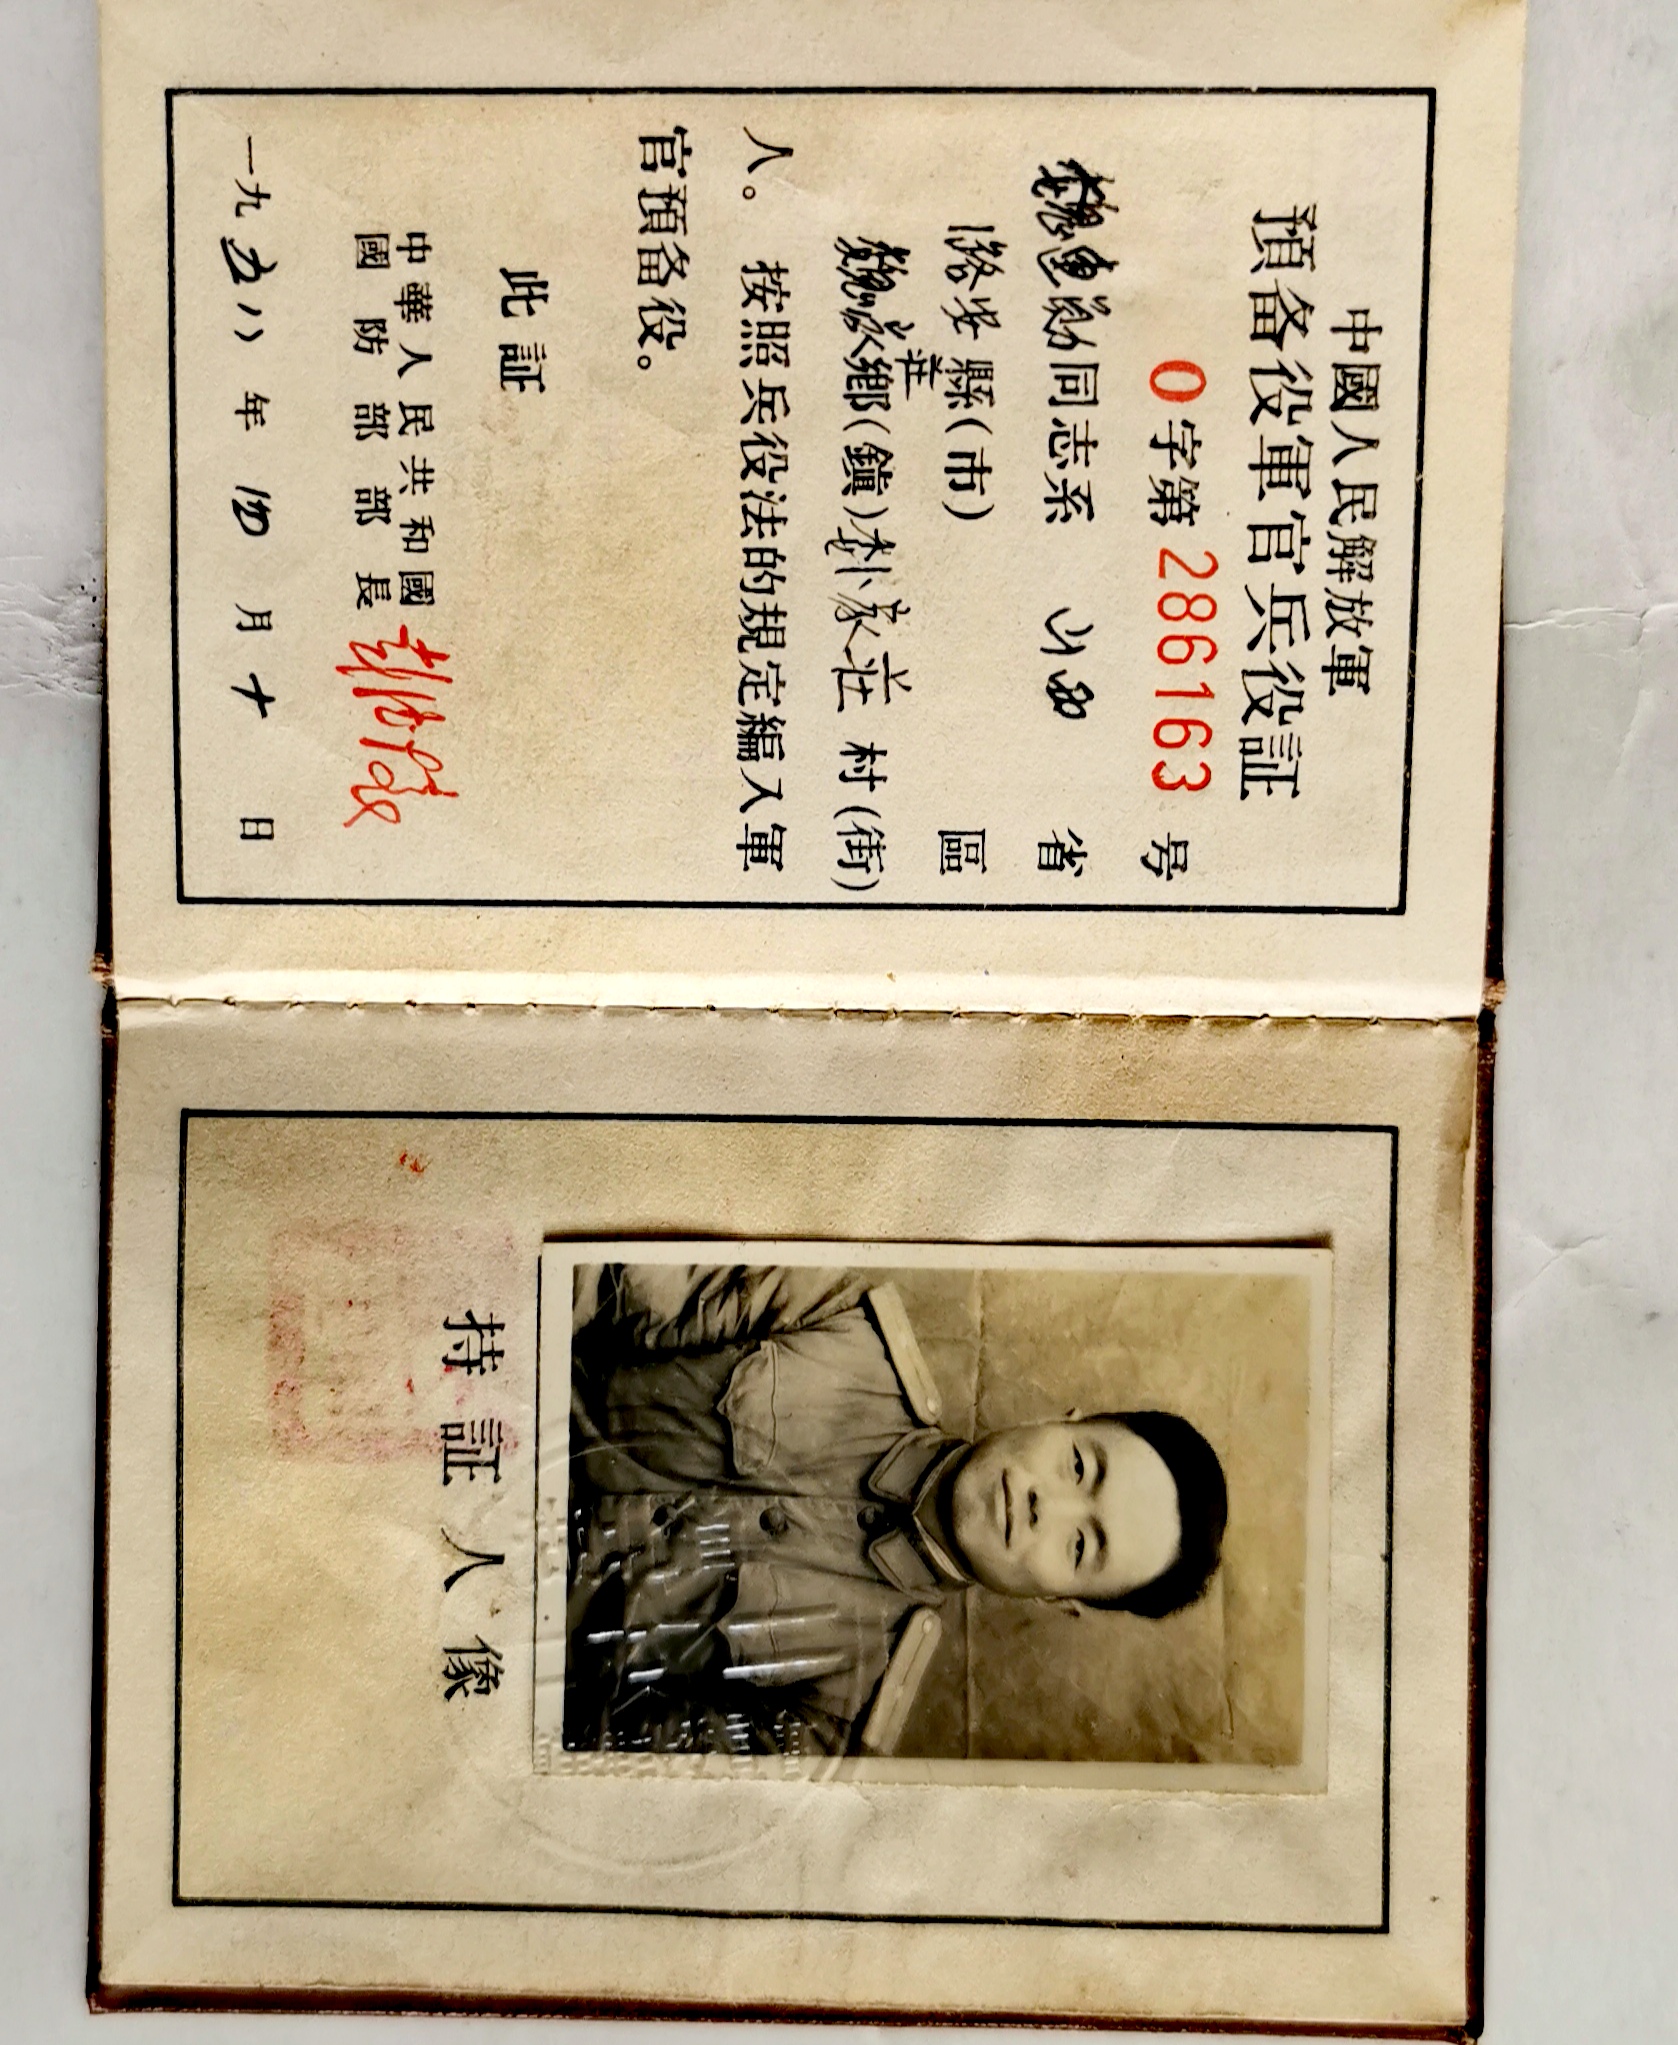 中國人民解放軍
預备役軍官兵役証
0字第286163号
同志系 山西省
潞安縣(市) 區
魏家莊鄉(鎮) 家莊村(街)
人。按照兵役法的規定編入軍
官預备役。
此証
中華人民共和國
國防部部長 彭德懷
一九五八年 四月十日
持証人像